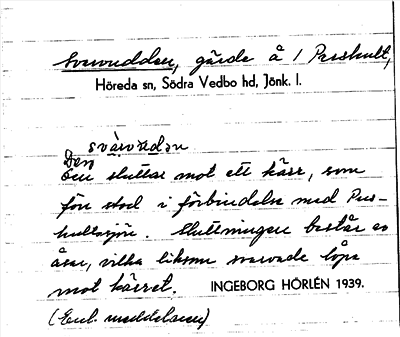 Svarvudden, gärde å 1 Pusshult,
Höreda sn, Södra Vedbo hd, Jönk. l.
svàrvùdən
Den sluttar mot ett kärr, som
förr stod i förbindelse med Pus-
hultasjön. Sluttningen består av
åsar, vilka liksom svarvade löpa
mot kärret. INGEBORG HÖRLÉN 1939.
(Enl. meddelaren)